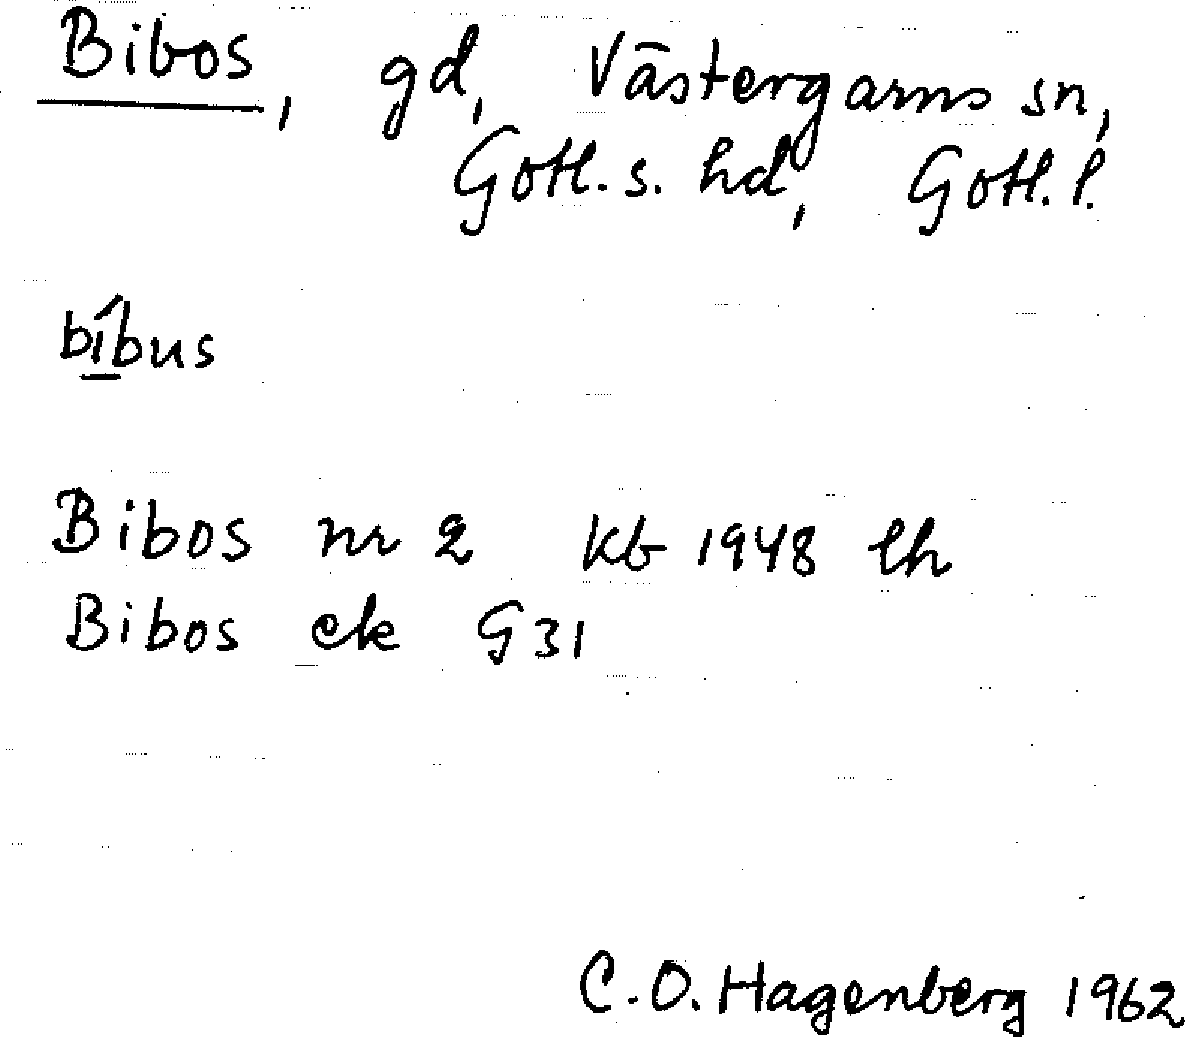 Bibos, gd, Västergarns sn,
Gotl. s. hd, Gotl. l.
bíbus
Bibos nr 2 kb 1948 lh
Bibos ek G31
C.O. Hagenberg 1962